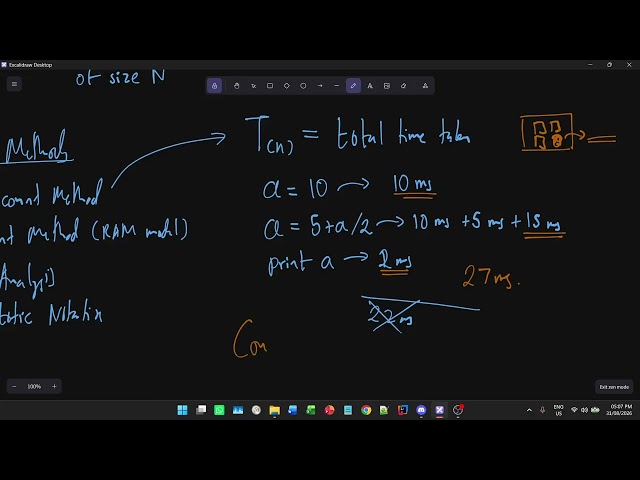 Excalidraw Desktop
of size N
Methods
count Method
nt Method (RAM model)
Analysis
totic Notation
T(n) = total time taken
a = 10 → 10 ms
a = 5+a/2 → 10 ms +5 ms + 15 ms
print a → 2 ms
27 ms.
22 ms
Con
100%
Exit zen mode
ENG
US
05:07 PM
31/08/2026